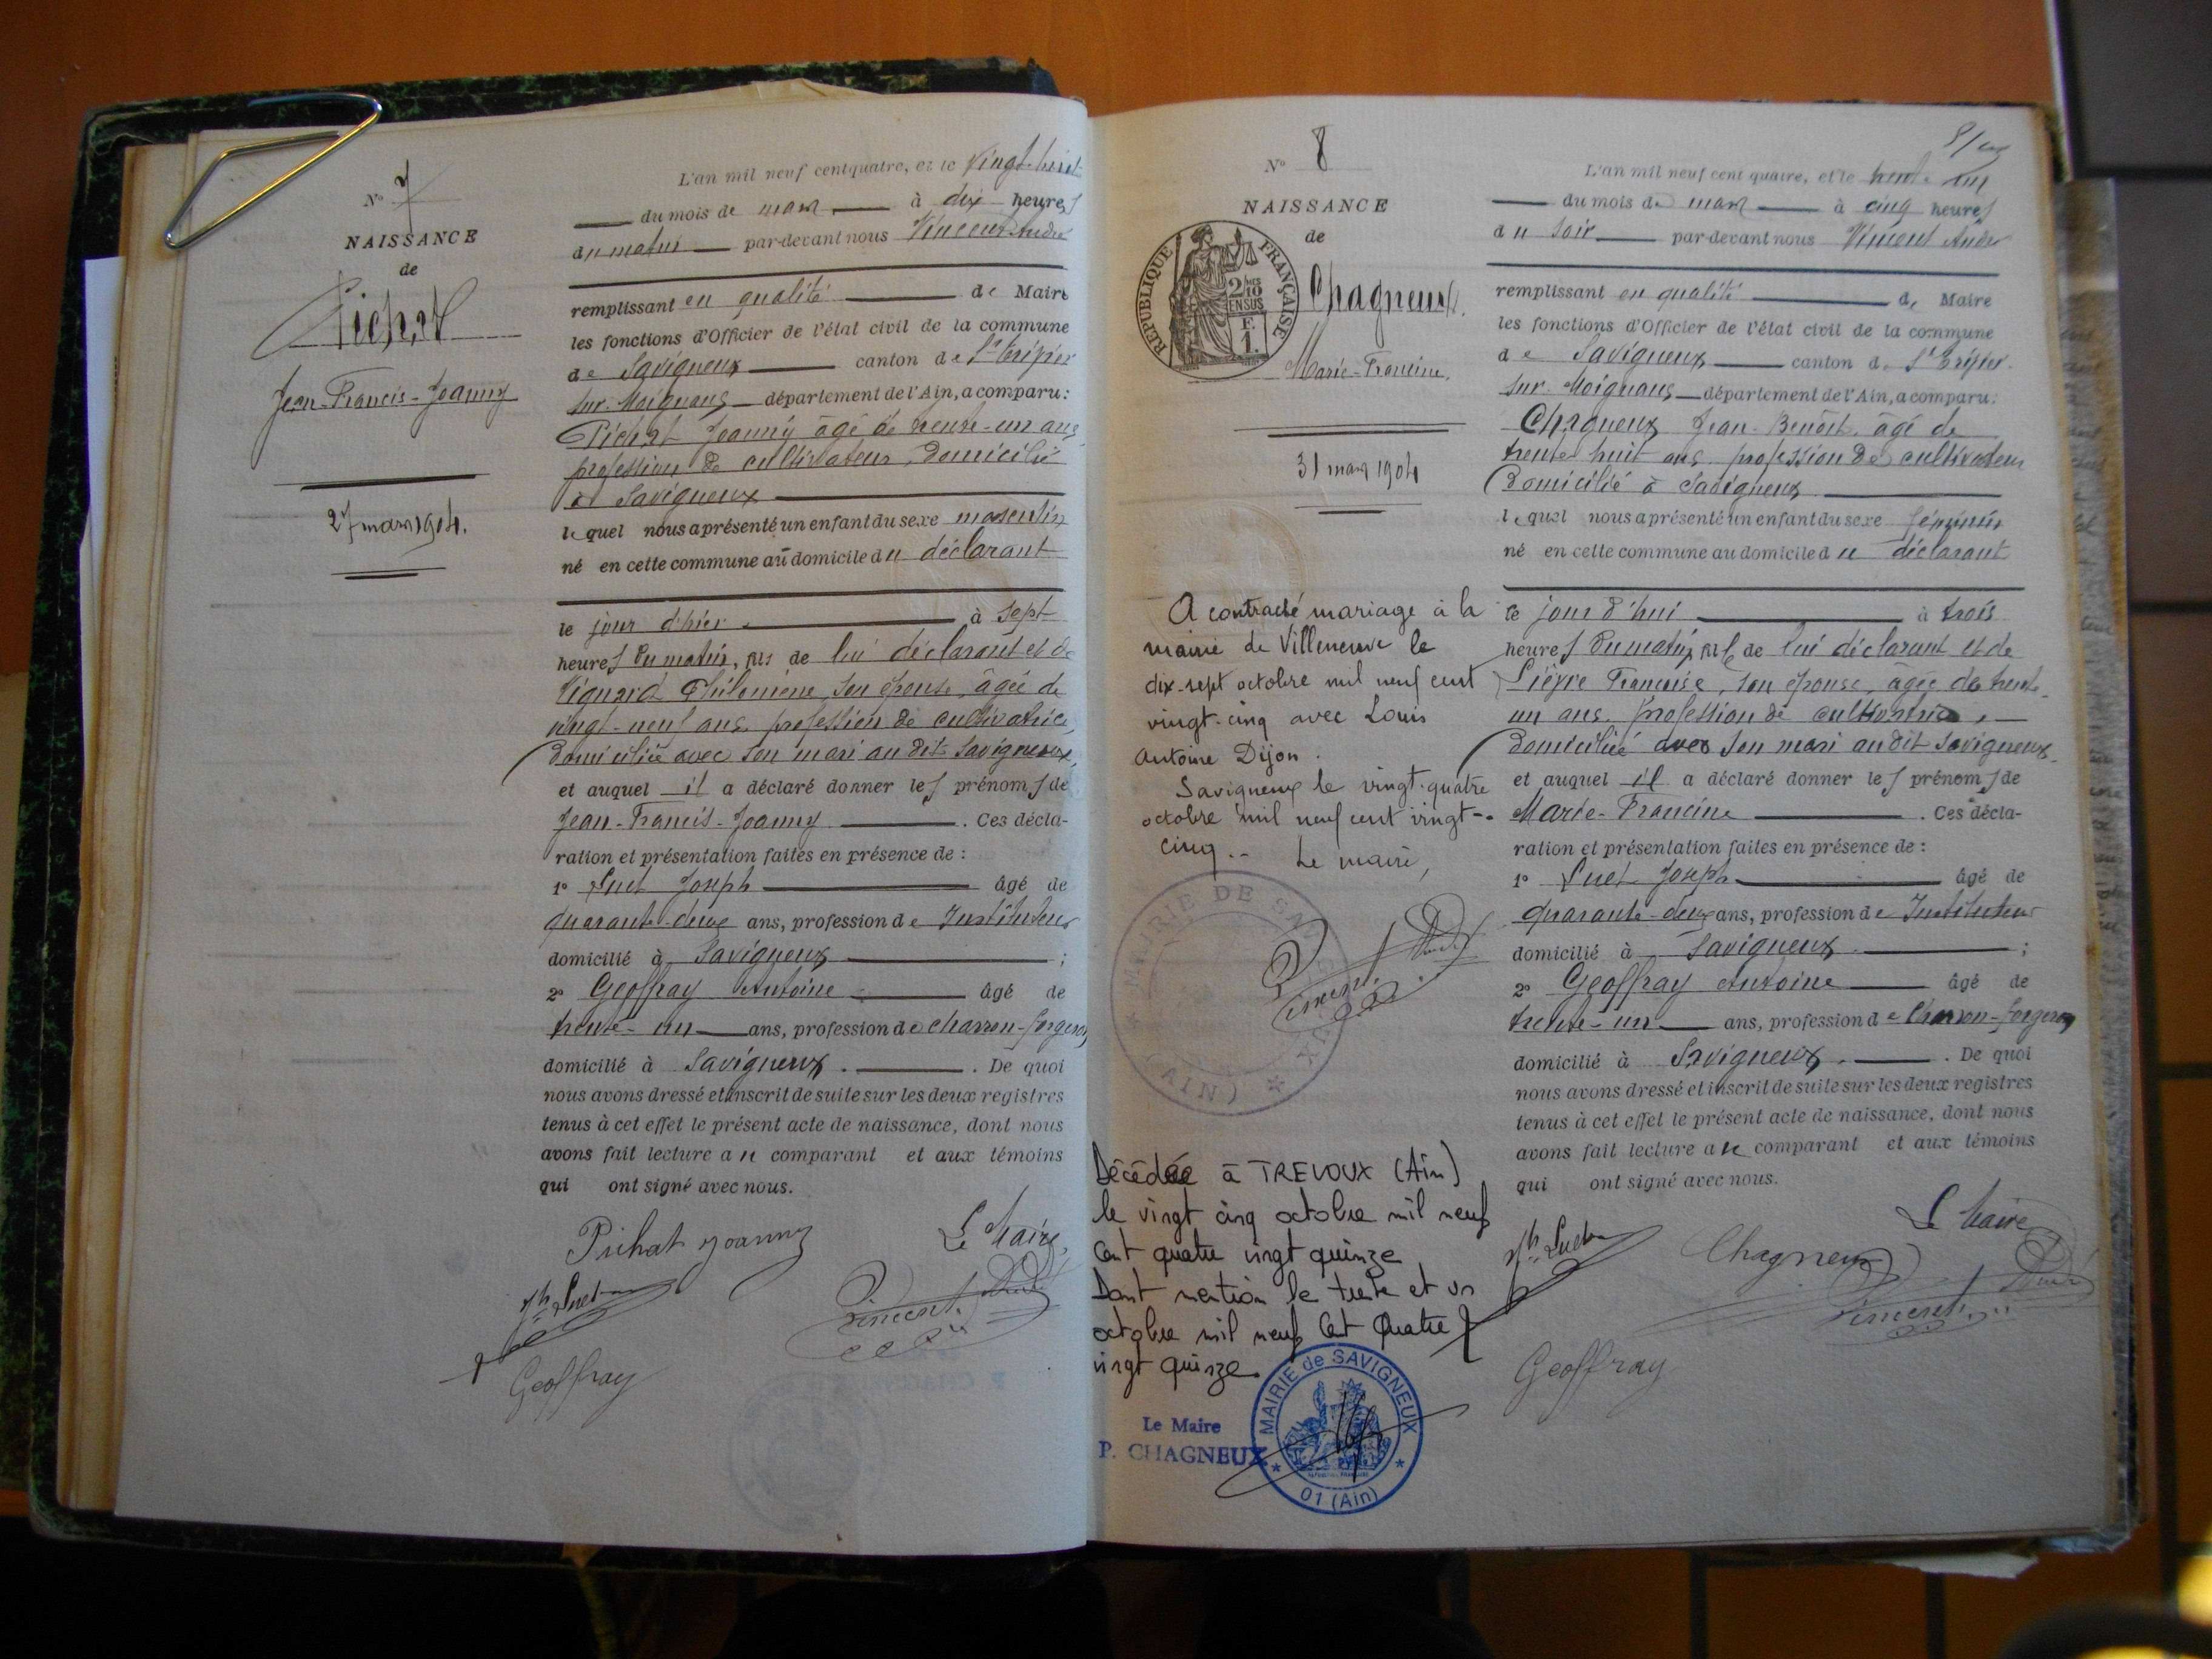 N° 7
NAISSANCE
de
Pichat
Jean-Francis-Joanny
27 mars 1904.
L'an mil neuf cent quatre, et le vingt-huit
du mois de mars à dix heures
du matin par-devant nous Vincent André
remplissant en qualité de Maire
les fonctions d'Officier de l'état civil de la commune
de Savigneux canton de St Trivier
sur-Moignans département de l'Ain, a comparu:
Pichat Joanny âgé de trente-un ans,
profession de cultivateur, domicilié
à Savigneux
lequel nous a présenté un enfant du sexe masculin
né en cette commune au domicile du déclarant
le jour d'hier à sept
heures du matin, fils de lui déclarant et de
Philomène, son épouse, âgée de
vingt-neuf ans, profession de cultivatrice,
domiciliée avec son mari au dit Savigneux,
et auquel il a déclaré donner les prénoms de
Jean-Francis-Joanny . Ces décla-
ration et présentation faites en présence de :
1° Luet Joseph âgé de
quarante-deux ans, profession de Instituteur
domicilié à Savigneux ;
2° Geoffray Antoine âgé de
trente-un ans, profession de charron-forgeron
domicilié à Savigneux . De quoi
nous avons dressé et inscrit de suite sur les deux registres
tenus à cet effet le présent acte de naissance, dont nous
avons fait lecture au comparant et aux témoins
qui ont signé avec nous.
Pichat Joanny
Le Maire,
Jh Luet
Vincent André
Geoffray
8/
N° 8
NAISSANCE
de
REPUBLIQUE FRANÇAISE
2/10
EN SUS
Chagneux.
Marie-Francine.
31 mars 1904
A contracté mariage à la
mairie de Villeneuve le
dix-sept octobre mil neuf cent
vingt-cinq avec Louis
Antoine Dijon.
Savigneux le vingt-quatre
octobre mil neuf cent vingt-
cinq.-
Le maire,
Vincent André
MAIRIE DE SAVIGNEUX (AIN)
Décédée à TREVOUX (Ain)
le vingt cinq octobre mil neuf
cent quatre vingt quinze
Dont mention le trente et un
octobre mil neuf cent quatre
vingt quinze.
Le Maire
P. CHAGNEUX
MAIRIE de SAVIGNEUX
01 (Ain)
L'an mil neuf cent quatre, et le trente un
du mois de mars à cinq heures
du soir par-devant nous Vincent André
remplissant en qualité de Maire
les fonctions d'Officier de l'état civil de la commune
de Savigneux canton de St Trivier
sur-Moignans département de l'Ain, a comparu:
Chagneux Jean-Benoît âgé de
trente huit ans, profession de cultivateur
domicilié à Savigneux
lequel nous a présenté un enfant du sexe féminin
né en cette commune au domicile du déclarant
ce jour d'hui à trois
heures du matin, fille de lui déclarant et de
Lièvre Françoise, son épouse, âgée de trente-
un ans, profession de cultivatrice,
domiciliée avec son mari au dit Savigneux
et auquel il a déclaré donner les prénoms de
Marie-Francine . Ces décla-
ration et présentation faites en présence de :
1° Luet Joseph âgé de
quarante-deux ans, profession de Instituteur
domicilié à Savigneux ;
2° Geoffray Antoine âgé de
trente-un ans, profession de Charron-forgeron
domicilié à Savigneux . De quoi
nous avons dressé et inscrit de suite sur les deux registres
tenus à cet effet le présent acte de naissance, dont nous
avons fait lecture au comparant et aux témoins
qui ont signé avec nous.
Le Maire
Jh Luet
Chagneux
Vincent André
Geoffray